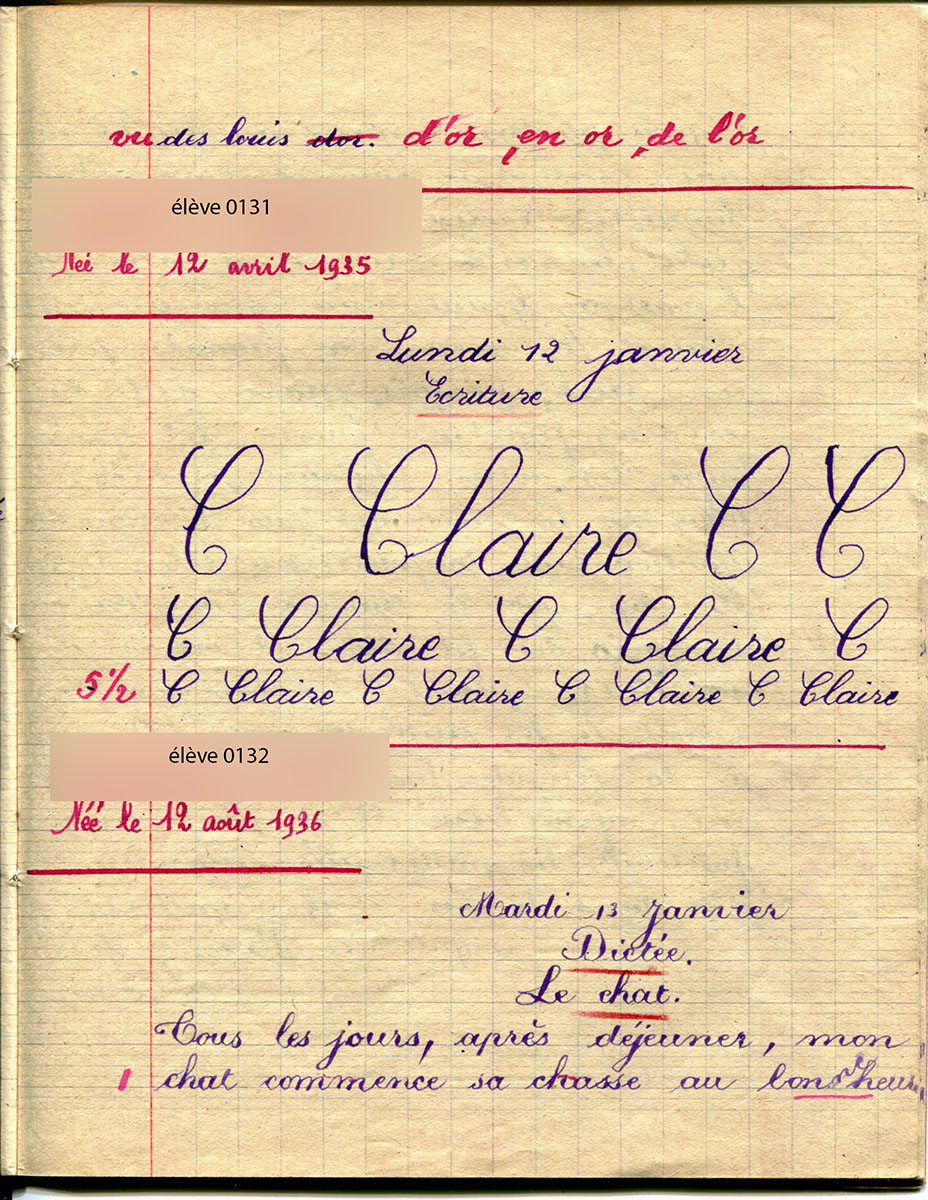 vu des louis dor. d'or, en or, de l'or
élève 0131
Née le 12 avril 1935
Lundi 12 janvier
Ecriture
C Claire C C
C Claire C Claire C
5 1/2 C Claire C Claire C Claire C Claire
élève 0132
Née le 12 août 1936
Mardi 13 janvier
Dictée.
Le chat.
Tous les jours, après déjeuner, mon
1 chat commence sa chasse au bonheur